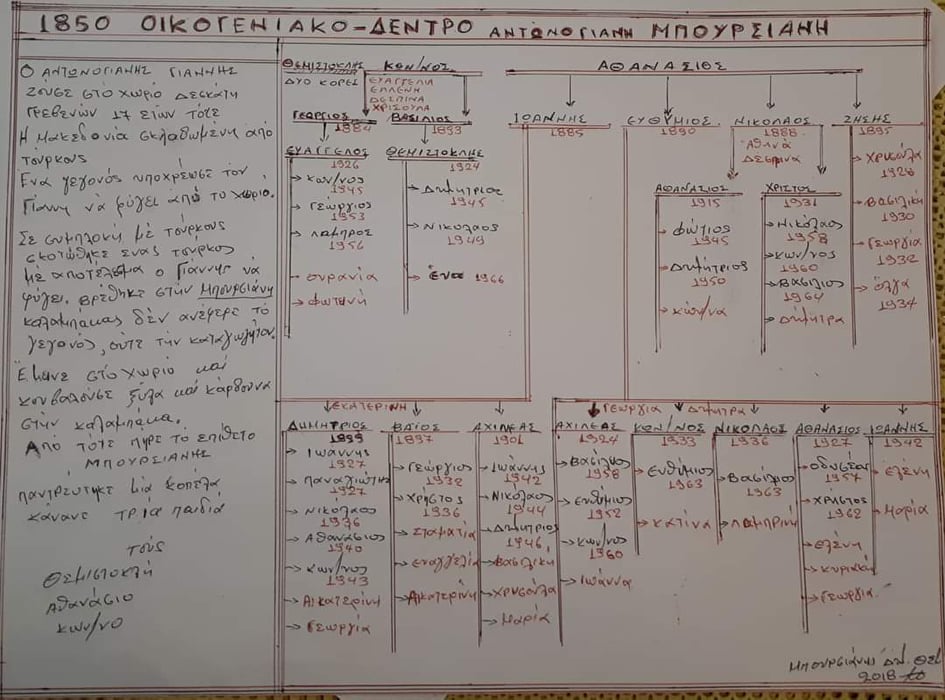 1850 ΟΙΚΟΓΕΝΙΑΚΟ-ΔΕΝΤΡΟ ΑΝΤΩΝΟΓΙΑΝΗ ΜΠΟΥΡΣΙΑΝΗ
Ο ΑΝΤΩΝΟΓΙΑΝΗΣ ΓΙΑΝΝΗΣ
ΖΟΥΣΕ ΣΤΟ ΧΩΡΙΟ ΔΕΣΚΑΤΗ
ΓΡΕΒΕΝΩΝ 17 ΕΤΩΝ ΤΟΤΕ
Η Μακεδονία σκλαβωμένη από
τούρκους
Ένα γεγονός υποχρέωσε τον
Γιάννη να φύγει από το χωριο.
Σε συμπλοκή με τούρκους
σκοτώθηκε ένας τούρκος
με αποτέλεσμα ο Γιάννης να
φύγει. βρέθηκε στην Μπουρσιάνη
καλαμπάκας δεν ανέφερε το
γεγονός, ούτε την καταγωγήτου.
Έμανε στο χωριο και
κουβαλούσε ξύλα και κάρβουνα
στην καλαμπάκα.
Από τότε πηρε το επίθετο
ΜΠΟΥΡΣΙΑΝΗΣ
παντρεύτηκε μία κοπέλα
κάνανε ΤΡΙΑ παιδιά
τούς
Θεμιστοκλή
Αθανάσιο
κων/νο
ΘΕΜΙΣΤΟΚΛΗΣ ΚΩΝ/ΝΟΣ
ΔΥΟ ΚΟΡΕΣ
ΕΥΑΓΓΕΛΗ
ΕΛΛΕΝΗ
ΔΕΣΠΙΝΑ
ΧΡΙΣΟΥΛΑ
ΓΕΩΡΓΙΟΣ
1884
ΒΑΣΙΛΙΟΣ
1893
ΕΥΑΓΓΕΛΟΣ
1926
Κων/νος
1945
Γεώργιος
1953
Λαμπρος
1956
ουρανία
φωτεινή
ΘΕΜΙΣΤΟΚΛΗΣ
1924
Δημήτριος
1945
Νικολαος
1949
Ένα 1966
ΑΘΑΝΑΣΙΟΣ
ΙΩΑΝΝΗΣ
1885
ΕΥΘΥΜΙΟΣ
1890
ΝΙΚΟΛΑΟΣ
1888
Αθηνά
Δέσπινα
ΑΘΑΝΑΣΙΟΣ
1915
φώτιος
1945
Δημήτριος
1950
κων/να
ΧΡΙΣΤΟΣ
1931
Νικόλαος
1958
κων/νος
1960
Βασίλιος
1964
Δήμητρα
ΖΗΣΗΣ
1895
Χρυσούλα
1928
Βασιλική
1930
Γεωργία
1932
όλγα
1934
ΕΚΑΤΕΡΙΝΗ
ΔΗΜΗΤΡΙΟΣ
1899
Ιωάννης
1927
Παναγιώτης
1927
Νικόλαος
1936
Αθανάσιος
1940
Κων/νος
1943
Αικατερίνη
Γεωργία
ΒΑΙΟΣ
1897
Γεώργιος
1932
Χρήστος
1936
Σταματία
Ευαγγελία
Αικατερίνη
ΑΧΙΛΕΑΣ
1901
Ιωάννης
1942
Νικόλαος
1944
Δημήτριος
1946
Βασιλική
Χρυσούλα
Μαρία
Γεωργία Δήμητρα
ΑΧΙΛΕΑΣ
1924
Βασίλιος
1958
Ευθύμιος
1952
Κων/νος
1960
Ιωάννα
ΚΩΝ/ΝΟΣ
1933
Ευθύμιος
1963
Κατίνα
ΝΙΚΟΛΑΟΣ
1936
Βασίλειος
1963
Λαμπρινή
ΑΘΑΝΑΣΙΟΣ
1927
Οδυσέας
1957
Χρήστος
1962
Ελένη
Κυριακή
Γεωργία
ΙΩΑΝΝΗΣ
1942
Ελένη
Μαρία
Μπουρσιάνης Δημ. Θεμ
2018